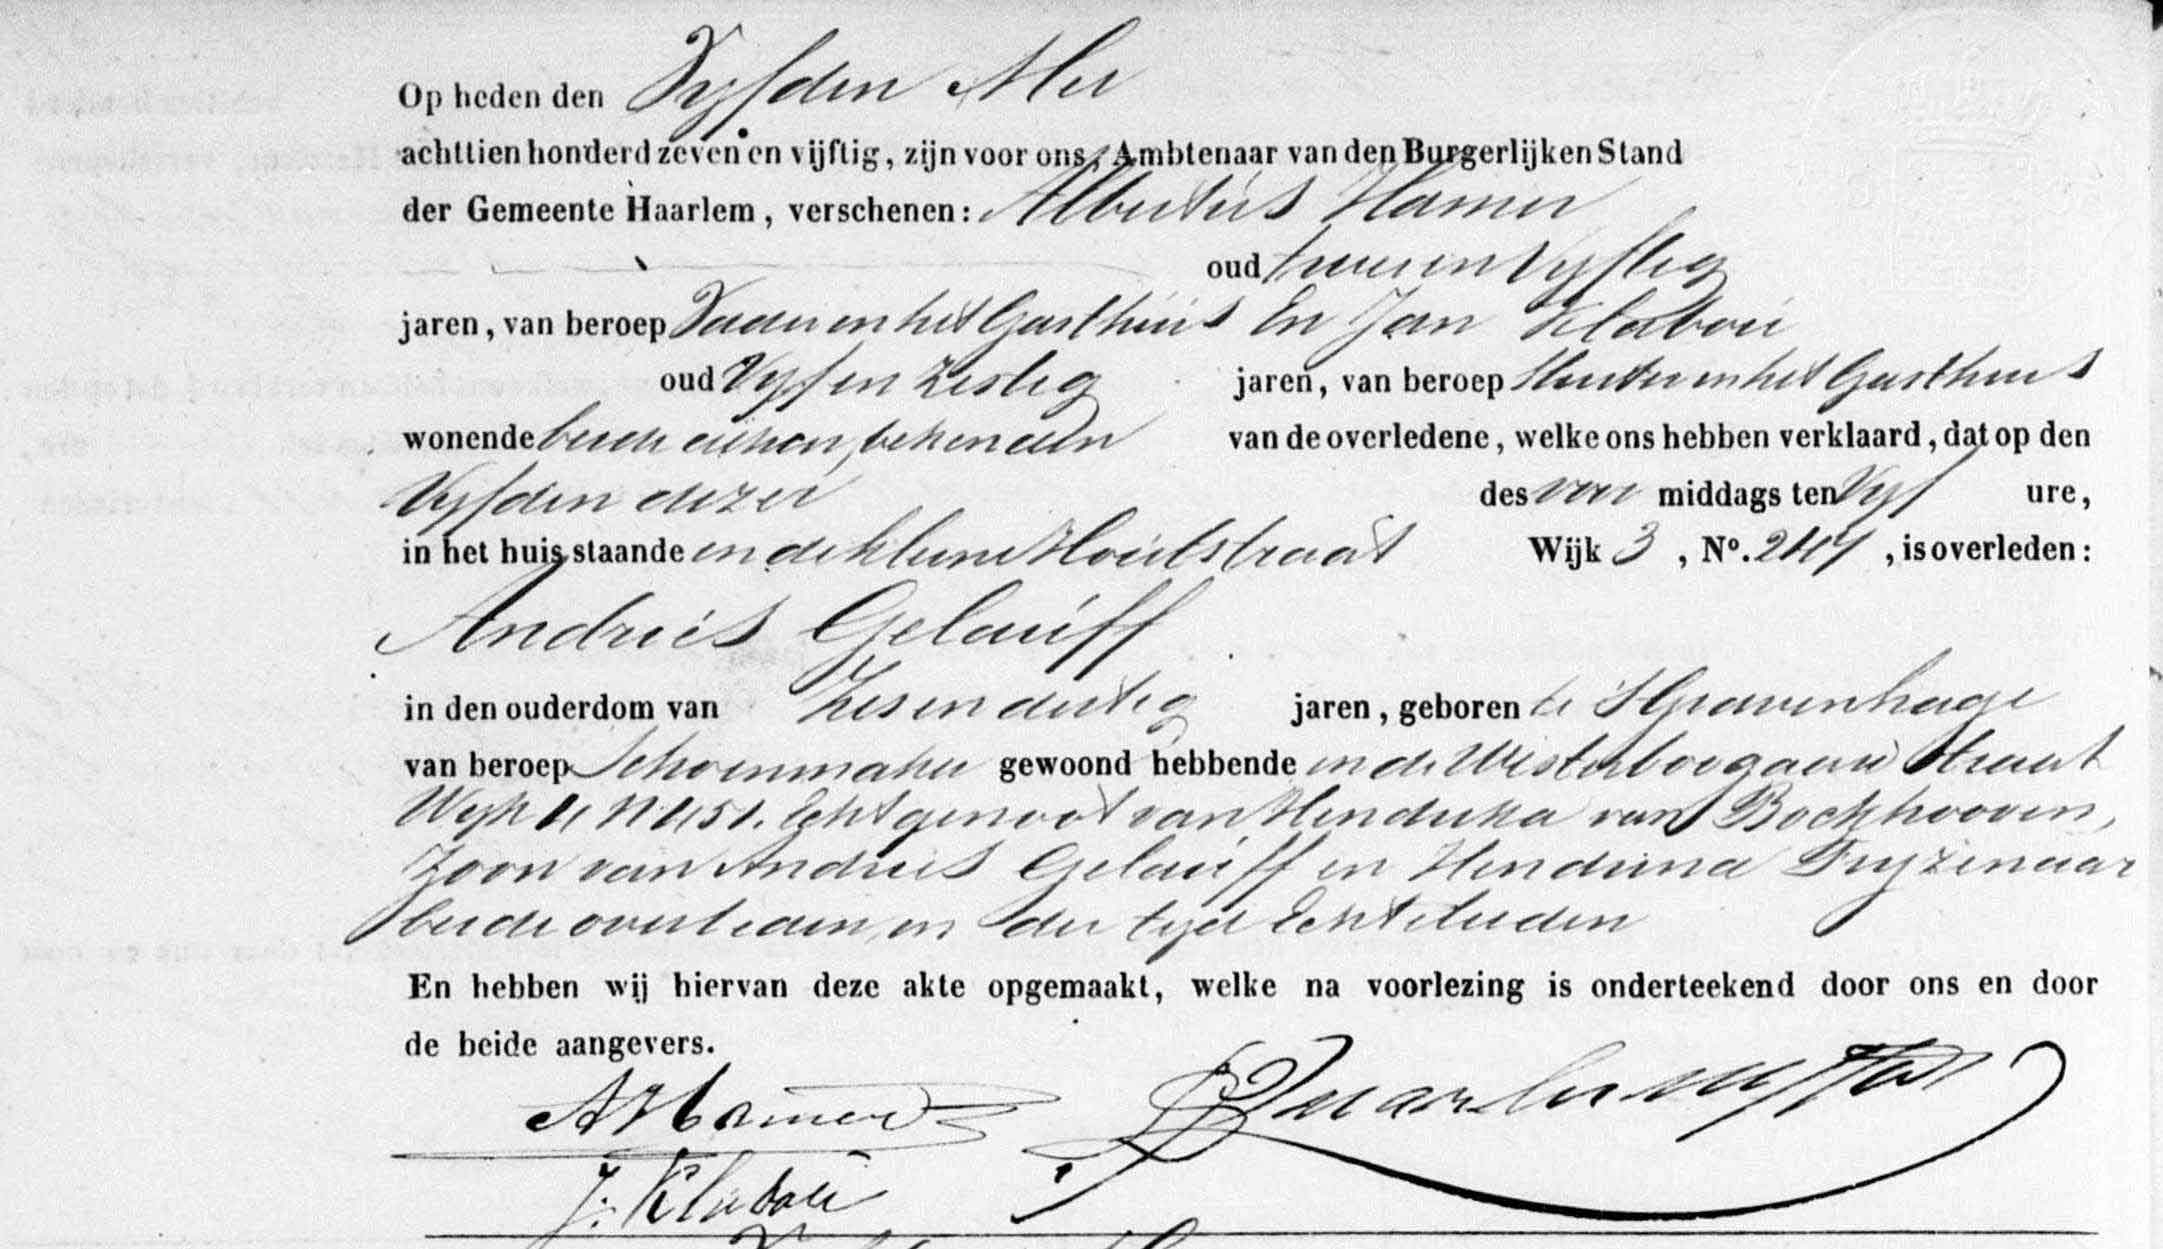 Op heden den Vyfden Mei
achttien honderd zeven en vijftig, zijn voor ons, Ambtenaar van den Burgerlijken Stand
der Gemeente Haarlem, verschenen: Albertus Hamer
oud twee en Vyftig
jaren, van beroep Vader in het Gasthuis En Jan Klabou
oud Vyf en Zestig jaren, van beroep Sluiter in het Gasthuis
wonende beide alhier, bekenden van de overledene, welke ons hebben verklaard, dat op den
Vyfden dezer des voor middags ten Vyf ure,
in het huis staande in de kleine Houtstraat Wijk 3, No. 244, is overleden:
Andries Gelauff
in den ouderdom van Zes en dertig jaren, geboren te 'sGravenhage
van beroep Schoenmaker gewoond hebbende in de Westerboogaard Straat
Wyk 4 N 451. Echtgenoot van Hendrika van Bockhooven,
Zoon van Andries Gelauff en Hendrina Fryzenaar
beide overleden, in der tyd Echtelieden
En hebben wij hiervan deze akte opgemaakt, welke na voorlezing is onderteekend door ons en door
de beide aangevers.
A Hamer
J. Klabou